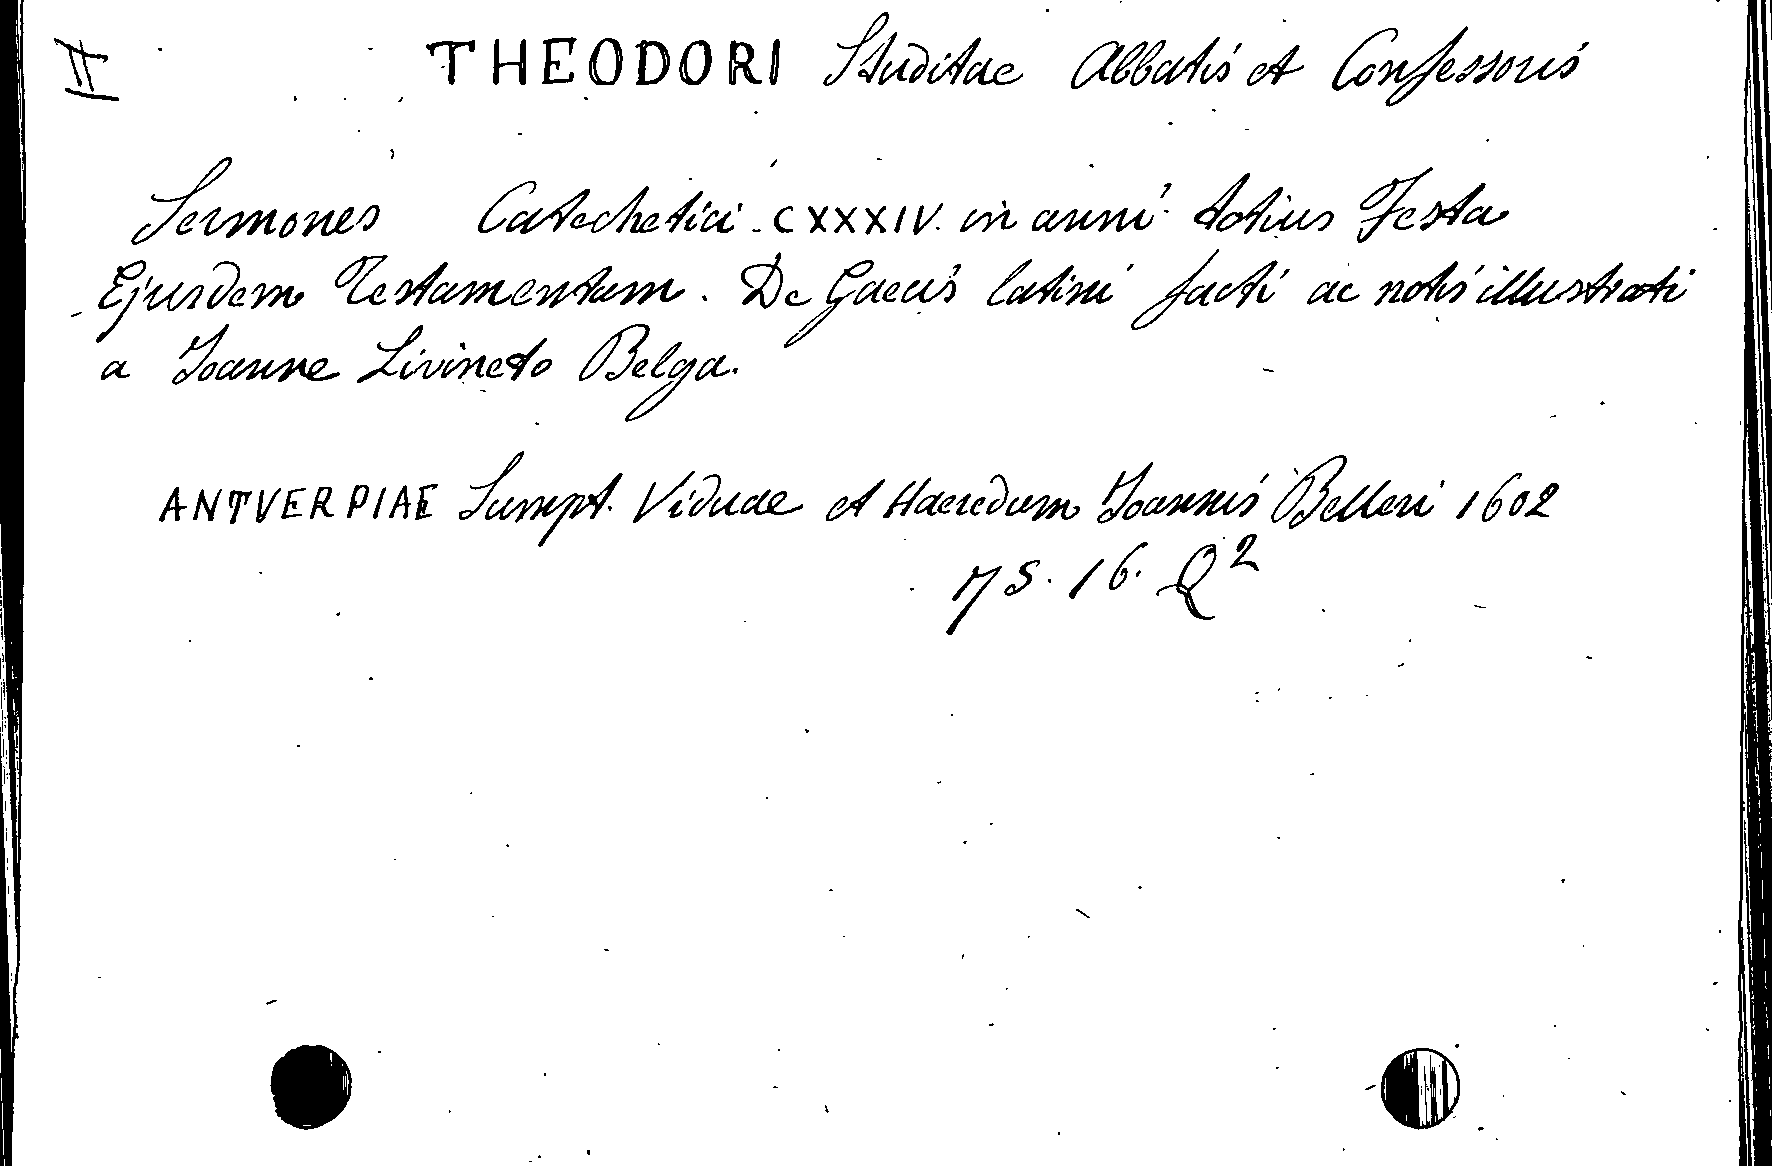 II THEODORI Studitae Abbatis et Confessoris
Sermones Catechetici CXXXIV. in anni totius Festa
Ejusdem Testamentum. De Gaecis latini facti ac notis illustrati
a Joanne Livineto Belga.
ANTVERPIAE Sumpt. Viduae et Haeredum Joannis Belleri 1602
75. 16. Q2